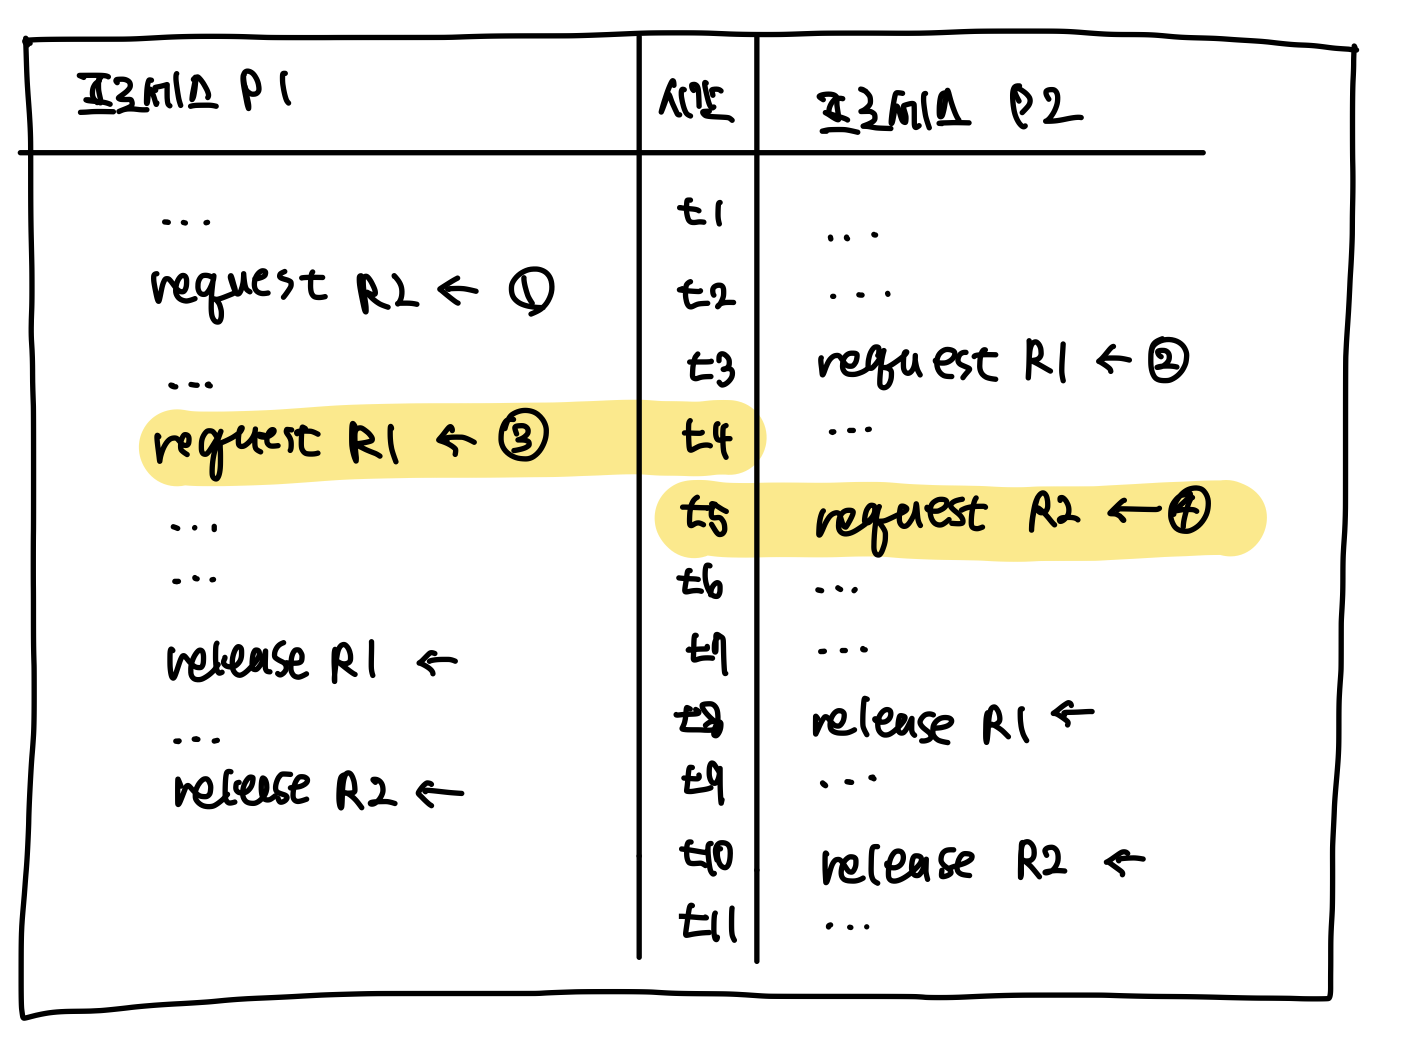 프로세스 P1 시간 프로세스 P2
... t1 ...
request R2 ← ① t2 ...
... t3 request R1 ← ②
request R1 ← ③ t4 ...
... t5 request R2 ← ④
... t6 ...
release R1 ← t7 ...
... t8 release R1 ←
release R2 ← t9 ...
t10 release R2 ←
t11 ...